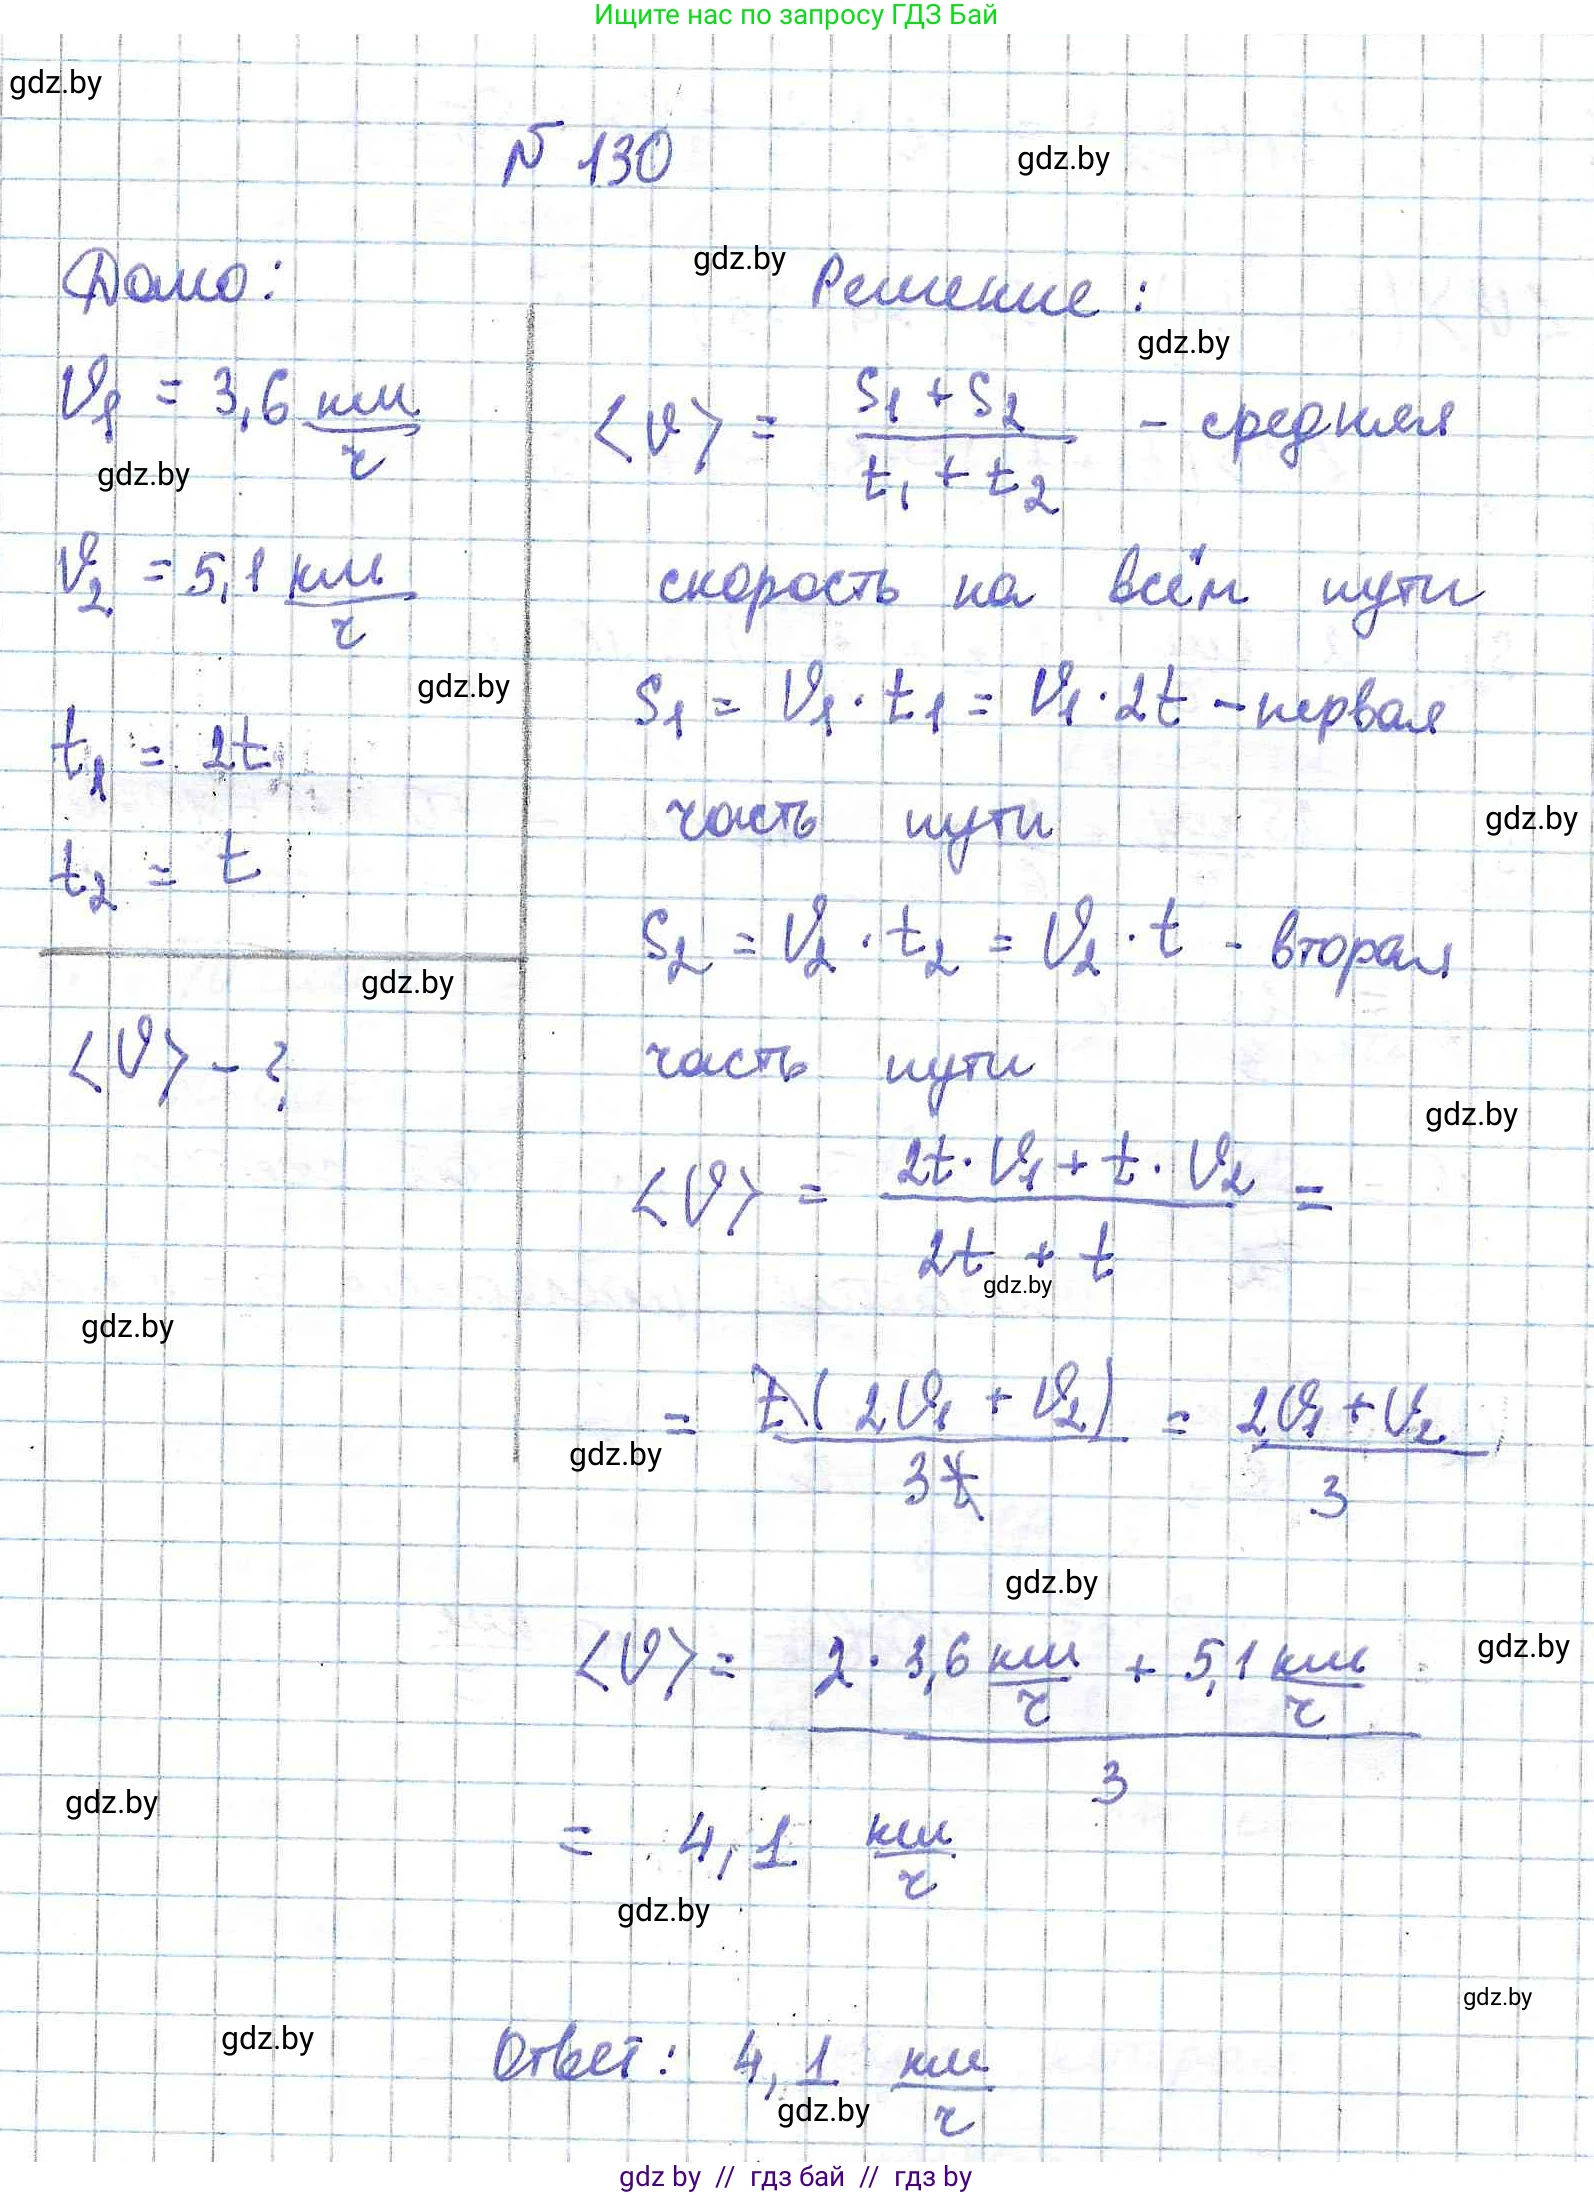 Ищите нас по запросу ГДЗ Бай
gdz.by
№ 130
gdz.by
Дано:
gdz.by
Решение:
gdz.by
v₁ = 3,6 км/ч
<v> = (s₁ + s₂)/(t₁ + t₂) - средняя
gdz.by
v₂ = 5,1 км/ч
скорость на всём пути
gdz.by
s₁ = v₁ · t₁ = v₁ · 2t - первая
t₁ = 2t
часть пути
gdz.by
t₂ = t
s₂ = v₂ · t₂ = v₂ · t - вторая
gdz.by
<v> - ?
часть пути
gdz.by
<v> = (2t · v₁ + t · v₂)/(2t + t) =
gdz.by
gdz.by
= t(2v₁ + v₂)/3t = (2v₁ + v₂)/3
gdz.by
gdz.by
<v> = (2 · 3,6 км/ч + 5,1 км/ч)/3
gdz.by
gdz.by
= 4,1 км/ч
gdz.by
gdz.by
gdz.by
Ответ: 4,1 км/ч
gdz.by
gdz by // гдз бай // гдз by